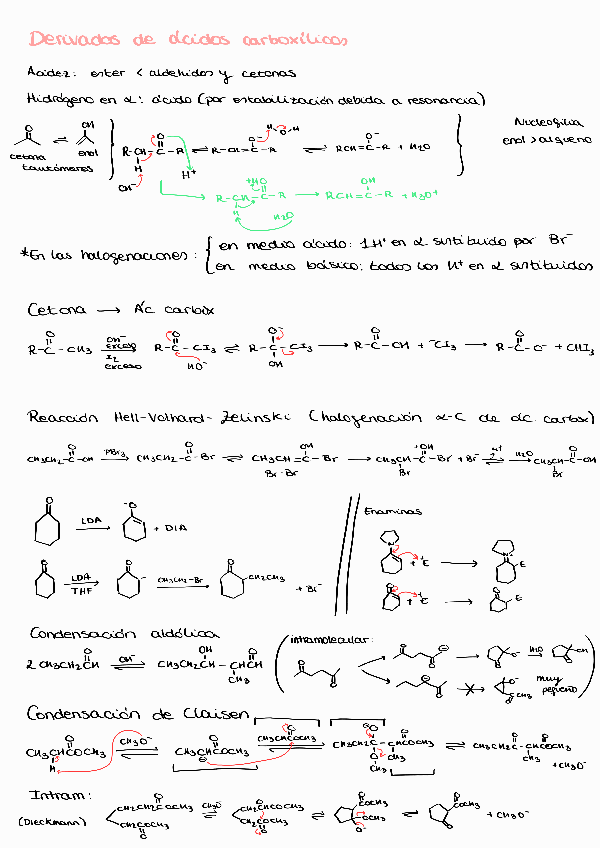 Derivados de ácidos carboxílicos
Acidez: ester < aldehidos y cetonas
Hidrógeno en α: ácido (por estabilización debida a resonancia)
O OH
cetona enol
tautómeros
R-CH-C-R ⇌ R-CH=C-R ⇌ RCH=C-R + H2O
Nucleofilia
enol > alqueno
OH⁻ H⁺
R-CH-C-R → RCH=C-R + H3O⁺
H H2O
*En las halogenaciones:
en medio ácido: 1H⁺ en α sustituido por Br⁻
en medio básico: todos los H⁺ en α sustituidos
Cetona → Ác carbox
R-C-CH3 OH⁻ exceso I2 exceso R-C-CI3 ⇌ R-C-CI3 → R-C-OH + ⁻CI3 → R-C-O⁻ + CHI3
HO⁻ OH
Reacción Hell-Volhard-Zelinski (halogenación α-C de ác. carbox)
CH3CH2-C-OH PBr3 → CH3CH2-C-Br ⇌ CH3CH=C-Br → CH3CH-C-Br + Br⁻ ⇌ H2O → CH3CH-C-OH
Br-Br Br Br
LDA → + DIA
Enaminas
N + E → N E
LDA THF → CH3CH2-Br → CH2CH3 + Br⁻
O + E → O E
Condensación aldólica
2 CH3CH2CH OH⁻ ⇌ CH3CH2CH-CHCH
CH3
intramolecular:
H2O OH
muy pequeño
CH3
Condensación de Claisen
CH3CHCOCH3 CH3O⁻ ⇌ CH3CHCOCH3 CH3CH2COCH3 ⇌ CH3CH2C-CHCOCH3 ⇌ CH3CH2C-CHCOCH3
H O CH3 CH3 CH3
+ CH3O⁻
Intram:
(Dieckmann)
CH2CH2COCH3 CH3O⁻ ⇌ CHCOCH3 ⇌ COCH3 ⇌ COCH3 + CH3O⁻
CH2COCH3 CH2COCH3 OCH3